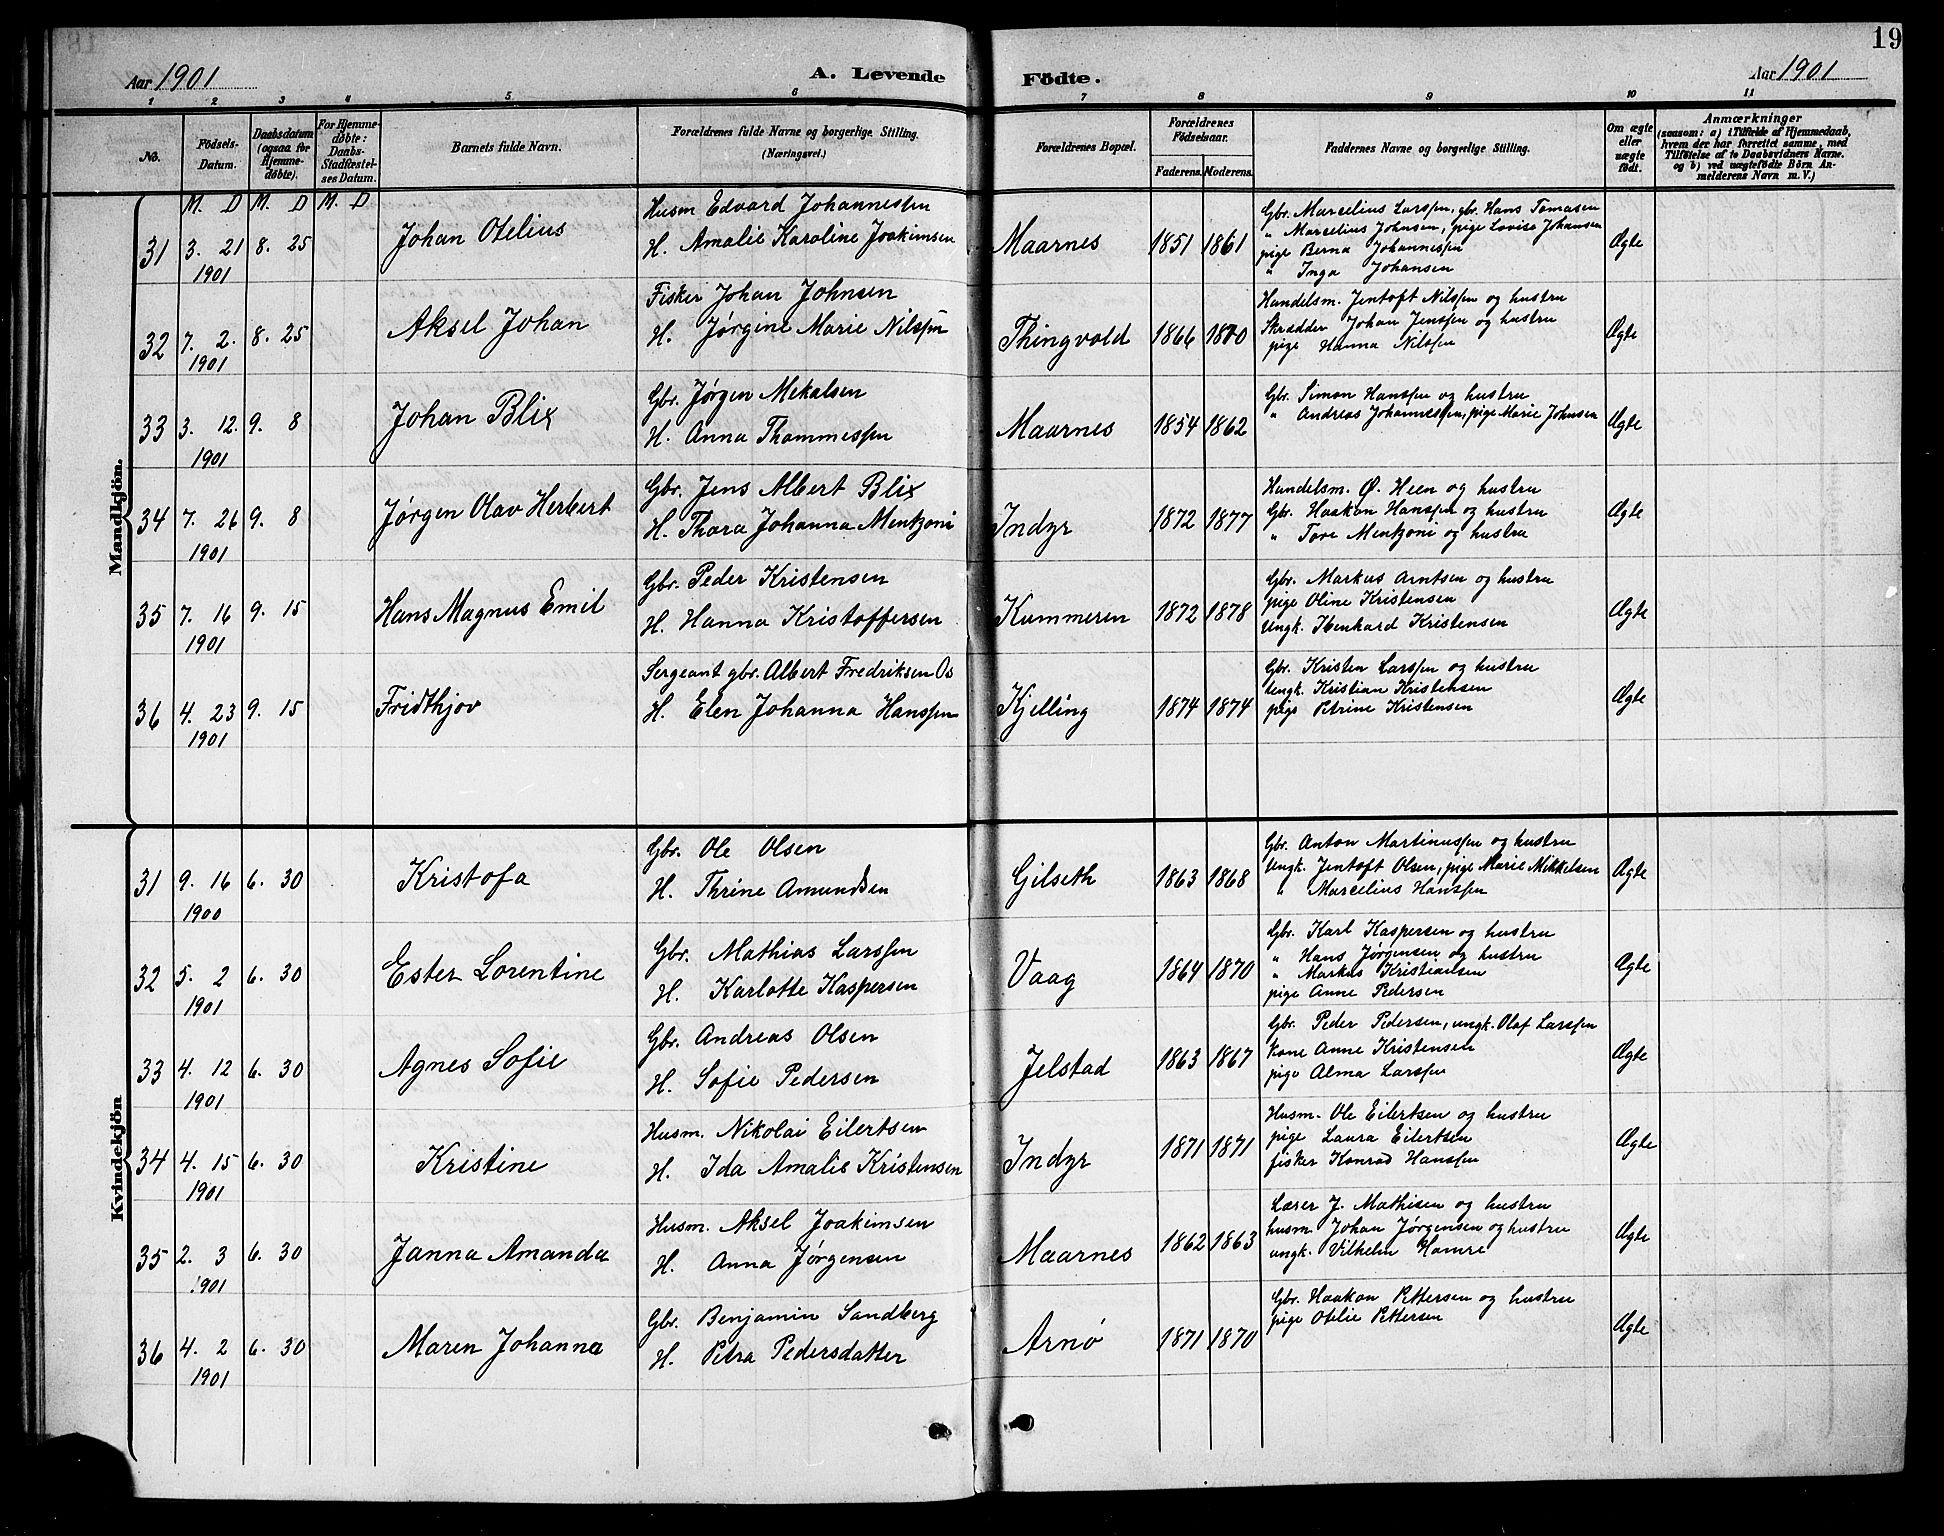 19
Aar 1901
A. Levende Födte.
Aar 1901
1 2 3 4 5 6 7 8 9 10 11
No.
Födsels-Datum.
Daabsdatum (ogsaa for Hjemme-döbte).
For Hjemme-døbte: Daabs-Stadfæstel-ses Datum.
Barnets fulde Navn.
Forældrenes fulde Navne og borgerlige Stilling.
(Næringsvei.)
Forældrenes Bopæl.
Forældrenes Födselsaar.
Faderens. Moderens.
Faddernes Navne og borgerlige Stilling.
Om ægte eller uægte födt.
Anmærkninger
(saasom: a) i Tilfælde af Hjemmedaab,
hvem der har forrettet samme, med
Tilföielse af to Daabsvidners Navne.
og b) ved uægtefödte Börn An-
melderens Navn m. V.)
Mandkjön.
M. D M. D M. D
31 3. 21 1901 8. 25
Johan Otelius
Husm Edvard Johannessen
H. Amalie Karoline Joakimsen
Maarnes 1851 1861
Gbr. Marcelius Larssen, gbr. Hans Tomasen
" Marcelius Johnsen, pige Lovise Johansen
pige Berna Johannessen
" Inga Johansen
Ægte
32 7. 2. 1901 8. 25
Aksel Johan
Fisker Johan Johnsen
H. Jørgine Marie Nilssen
Thingvold 1866 1870
Handelsm. Jentoft Nilssen og hustru
Skrædder Johan Jenssen og hustru
pige Hanna Nilssen
Ægte
33 3. 12. 1901 9. 8
Johan Blix
Gbr. Jørgen Mekalsen
H. Anna Thommessen
Maarnes 1854 1862
Gbr. Simon Hanssen og hustru
" Andreas Johannessen, pige Marie Johnsen
Ægte
34 7. 26 1901 9. 8
Jørgen Olav Herbert
Gbr. Jens Albert Blix
H. Thora Johanna Mentzoni
Indyr 1872 1877
Handelsm. Ø. Heen og hustru
Gbr. Haakon Hanssen og hustru
" Tore Mentzoni og hustru
Ægte
35 7. 16 1901 9. 15
Hans Magnus Emil
Gbr. Peder Kristensen
H. Hanna Kristoffersen
Kummeren 1872 1878
Gbr. Markus Arntsen og hustru
pige Oline Kristensen
Ungk. Kristensen
Ægte
36 4. 23 1901 9. 15
Fridthjov
Sergeant gbr. Albert Fredriksen Os
H. Elen Johanna Hanssen
Kjelling 1874 1874
Gbr. Kristen Larssen og hustru
Ungk. Kristian Kristensen
pige Petrine Kristensen
Ægte
Kvindekjön
31 9. 16 1900 6. 30
Kristofa
Gbr. Ole Olsen
H. Thrine Amundsen
Gilseth 1863 1868
Gbr. Anton Martinussen og hustru
Ungk. Jentoft Olsen, pige Marie Mikkelsen
" Marcelius Hanssen
Ægte
32 5. 2 1901 6. 30
Ester Lorentine
Gbr. Mathias Larssen
H. Karlotte Kaspersen
Vaag 1864 1870
Gbr. Karl Kaspersen og hustru
" Hans Jørgensen og hustru
" Markus
pige Anne Pedersen
Ægte
33 4. 12 1901 6. 30
Agnes Sofie
Gbr. Andreas Olsen
H. Sofie Pedersen
Jelstad 1863 1867
Gbr. Peder Pedersen, ungk. Olaf Larssen
Kone Anne Kristensen
pige Alma Larssen
Ægte
34 4. 15 1901 6. 30
Kristine
Husm. Nikolai Eilertsen
H. Ida Amalie Kristensen
Indyr 1871 1871
Husm. Ole Eilertsen og hustru
pige Laura Eilertsen
fisker Konrad Hanssen
Ægte
35 2. 3 1901 6. 30
Janna Amanda
Husm. Aksel Joakimsen
H. Anna Jørgensen
Maarnes 1862 1863
Lærer J. Mathisen og hustru
husm. Johan Jørgensen og hustru
ungk. Vilhelm Hamre
Ægte
36 4. 2 1901 6. 30
Maren Johanna
Gbr. Benjamin Sandberg
H. Petra Pedersdatter
Arnø 1871 1870
Gbr. Haakon Pettersen og hustru
pige Otelie Pettersen
Ægte